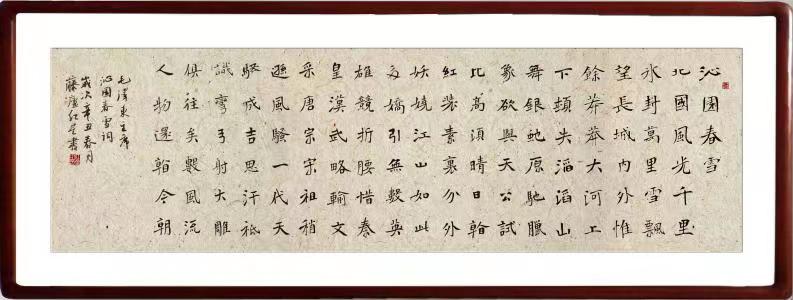 沁園春雪
北國風光千里
冰封萬里雪飄
望長城內外惟
餘莽莽大河上
下頓失滔滔山
舞銀蛇原馳臘
象欲與天公試
比高須晴日看
紅裝素裹分外
妖嬈江山如此
多嬌引無數英
雄競折腰惜秦
皇漢武略輸文
采唐宗宋祖稍
遜風騷一代天
驕成吉思汗祗
識彎弓射大雕
俱往矣數風流
人物還看今朝
毛澤東主席
沁園春雪詞
歲次辛丑春月
藤廬紅星書